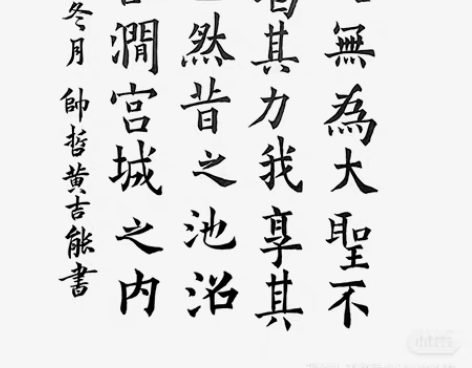 無為大聖不
其力我享其
然昔之池沼
澗宫城之内
冬月 帥哲黄吉能書